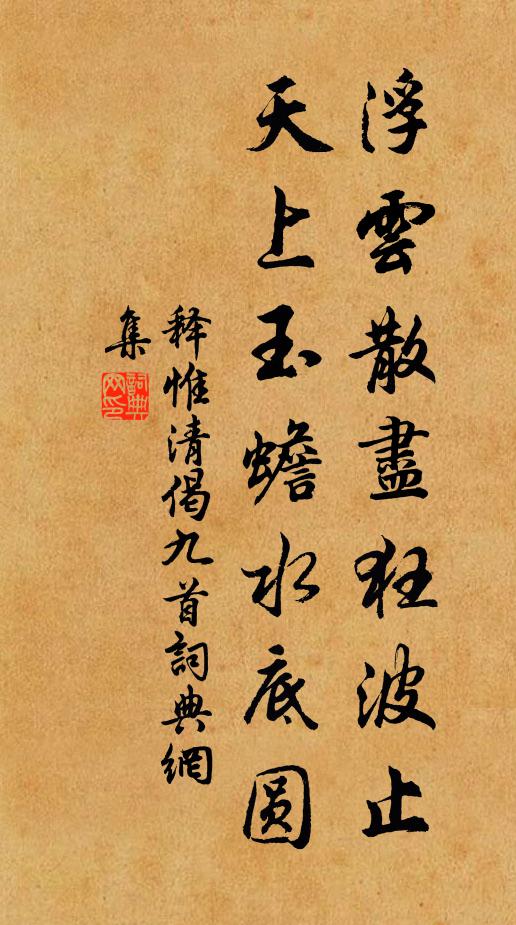 浮雲散盡狂波止
天上玉蟾水底圓
释惟清偈九首詞典網
集
詞典網印